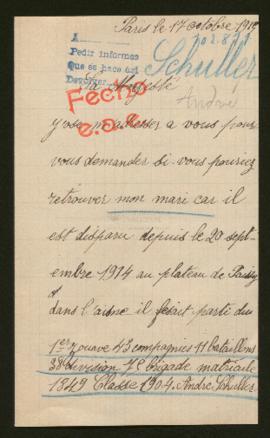 Paris le 17 octobre 1915
A
Pedir informes
Que se hace así
Devolver
Schuller
André
Sa Majesté
Fecho
e.o.e.
y'ose m'adresser a vous pour
vous demander si vous pouriez
retrouver mon mari car il
est disparu depuis le 20 sept-
embre 1914 au plateau de
dans l'aisne il feiait partie du
1er zouave 43 compagnies 11 bataillons
38 division 7e brigade matricule
1849 Classe 1904. André Schuller.